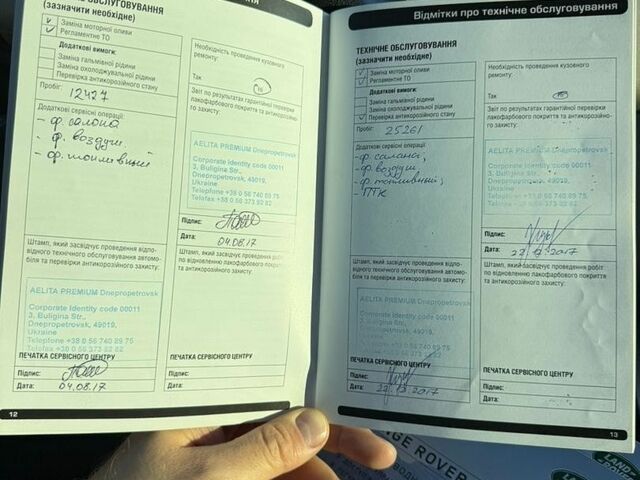 ОБСЛУГОВУВАННЯ
(зазначити необхідне)
Заміна моторної оливи
Регламентне ТО
Додаткові вимоги:
Заміна гальмівної рідини
Заміна охолоджувальної рідини
Перевірка антикорозійного стану
Пробіг: 12427
Додаткові сервісні операції:
- ф. салона
- ф. воздуш
- ф. топливный
Необхідність проведення кузовного ремонту:
Так
Звіт по результатах гарантійної перевірки лакофарбового покриття та антикорозійного захисту:
AELITA PREMIUM Dnepropetrovsk
Corporate Identity code 00011
3, Buligina Str.,
Dnepropetrovsk, 49019,
Ukraine
Telephone +38 0 56 740 89 75
Telefax +38 0 56 373 92 82
Підпис:
Дата: 04.08.17
Штамп, який засвідчує проведення відпо-
відного технічного обслуговування автомо-
біля та перевірки антикорозійного захисту:
AELITA PREMIUM Dnepropetrovsk
Corporate Identity code 00011
3, Buligina Str.,
Dnepropetrovsk, 49019,
Ukraine
Telephone +38 0 56 740 89 75
Telefax +38 0 56 373 92 82
ПЕЧАТКА СЕРВІСНОГО ЦЕНТРУ
Підпис:
Дата: 04.08.17
Штамп, який засвідчує проведення робіт
по відновленню лакофарбового покриття
та антикорозійного захисту:
ПЕЧАТКА СЕРВІСНОГО ЦЕНТРУ
Підпис:
Дата:
12
Відмітки про технічне обслуговування
ТЕХНІЧНЕ ОБСЛУГОВУВАННЯ
(зазначити необхідне)
Заміна моторної оливи
Регламентне ТО
Додаткові вимоги:
Заміна гальмівної рідини
Заміна охолоджувальної рідини
Перевірка антикорозійного стану
Пробіг: 25261
Додаткові сервісні операції:
- ф. салона,
- ф. воздуш
- ф. топливный;
- ПТК
Необхідність проведення кузовного
ремонту:
Так
Звіт по результатах гарантійної перевірки
лакофарбового покриття та антикорозійного
захисту:
AELITA PREMIUM Dnepropetrovsk
Corporate Identity code 00011
3, Buligina Str.,
Dnepropetrovsk, 49019,
Ukraine
Telephone +38 0 56 740 89 75
Telefax +38 0 56 373 92 82
Підпис:
Дата:
Штамп, який засвідчує проведення відпо-
відного технічного обслуговування автомо-
біля та перевірки антикорозійного захисту:
AELITA PREMIUM Dnepropetrovsk
Corporate Identity code 00011
3, Buligina Str.,
Dnepropetrovsk, 49019,
Ukraine
Telephone +38 0 56 740 89 75
Telefax +38 0 56 373 92 82
ПЕЧАТКА СЕРВІСНОГО ЦЕНТРУ
Підпис:
Дата:
Штамп, який засвідчує проведення робіт
по відновленню лакофарбового покриття та
антикорозійного захисту:
ПЕЧАТКА СЕРВІСНОГО ЦЕНТРУ
Підпис:
Дата:
13
ROVER
LAND
ROVER